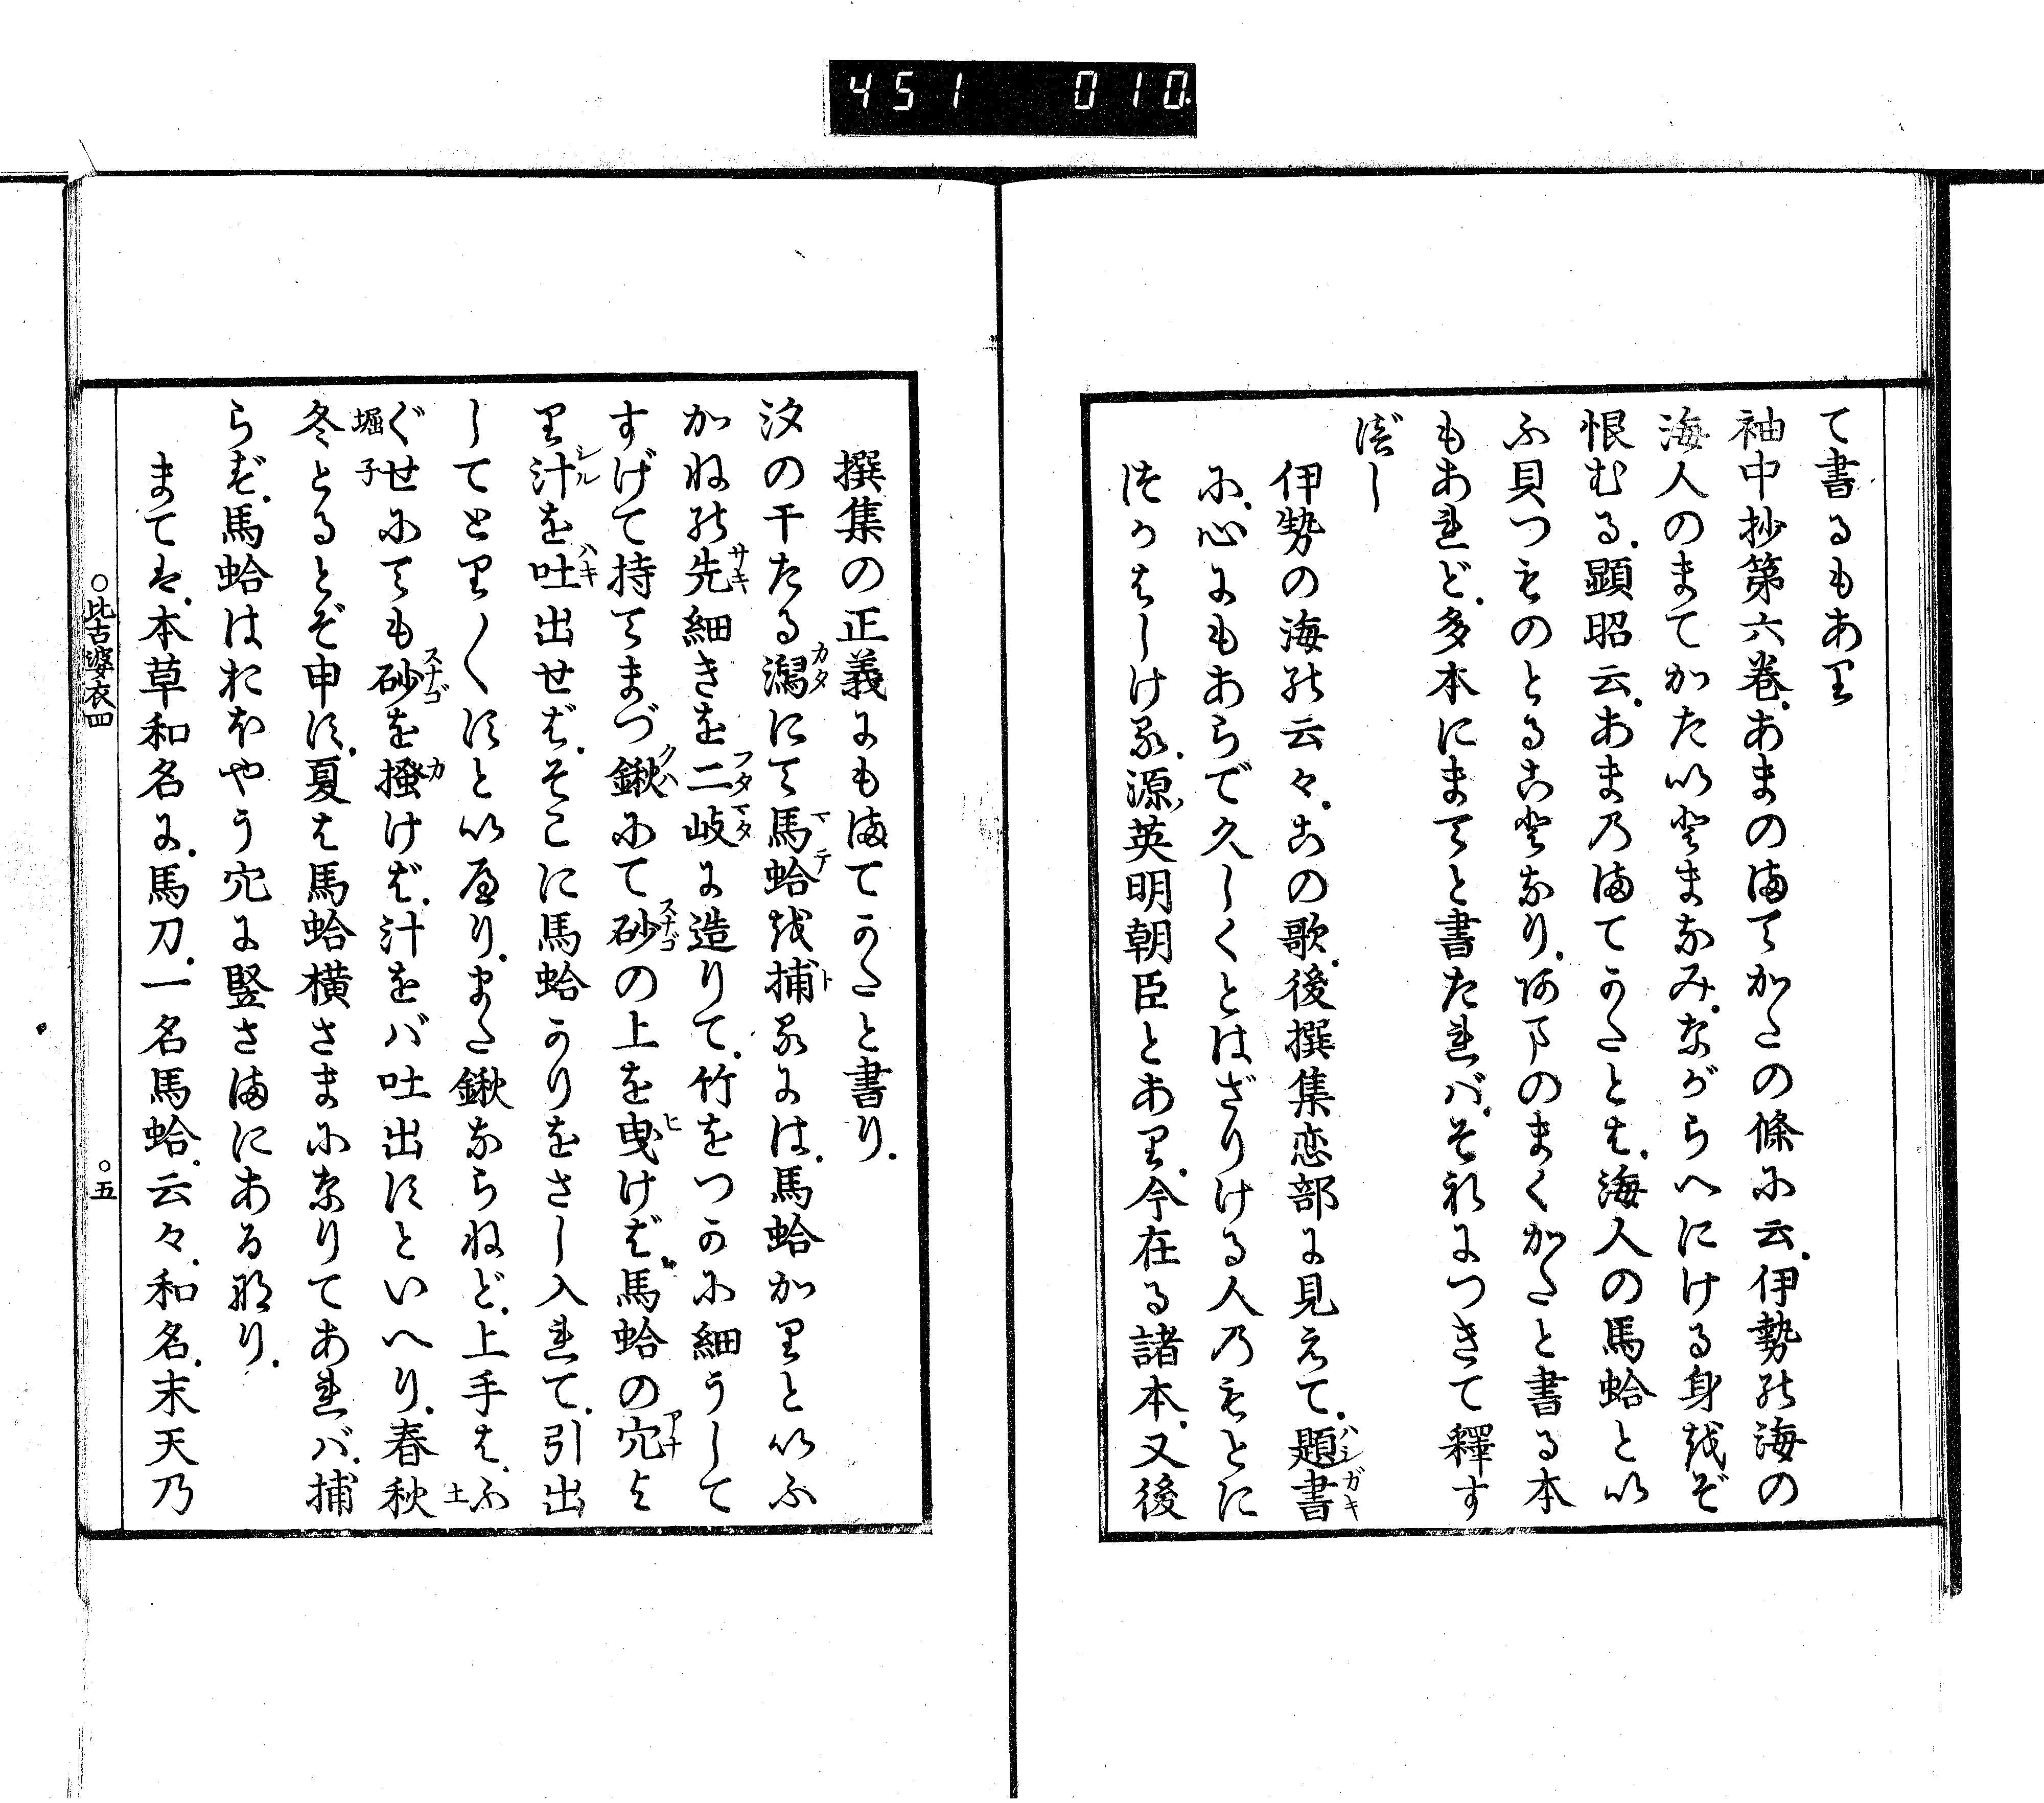 451 010
て書るもあり
袖中抄第六巻あまのまてかたの條に云伊勢の海の
海人のまてかたいとまなみながらへにける身をぞ
恨むる顕昭云あまのまてかたとは海人の馬蛤とい
ふ貝つものとることなり阿まのまくかたと書る本
もあれど多本にまてと書たればそれにつきて釋す
べし
伊勢の海の云々この歌後撰集恋部に見えて題書ハシガキ
に心にもあらで久しくとはざりける人のもとに
つかはしける源ノ英明朝臣とあり今在る諸本又後
撰集の正義にもまてかたと書り
汐の干たる潟カタにて馬蛤マテを捕トるには馬蛤かりといふ
かねの先サキ細きを二岐フタマタに造りて竹をつかに細うして
すげて持てまづ鍬クハにて砂スナゴの上を曳ヒけば馬蛤の穴アナよ
り汁シルを吐ハキ出せばそこに馬蛤かりをさし入れて引出
してとり〱すといへりまた鍬ならねど上手はふ土
ぐせ堀子にても砂スナゴを掻カけば汁をバ吐出すといへり春秋
冬とるとぞ申す夏は馬蛤横さまになりてあれバ捕
らず馬蛤はおほやう穴に竪さまにある那り
まては本草和名に馬刀一名馬蛤云々和名末天乃
○比古婆衣四
○五